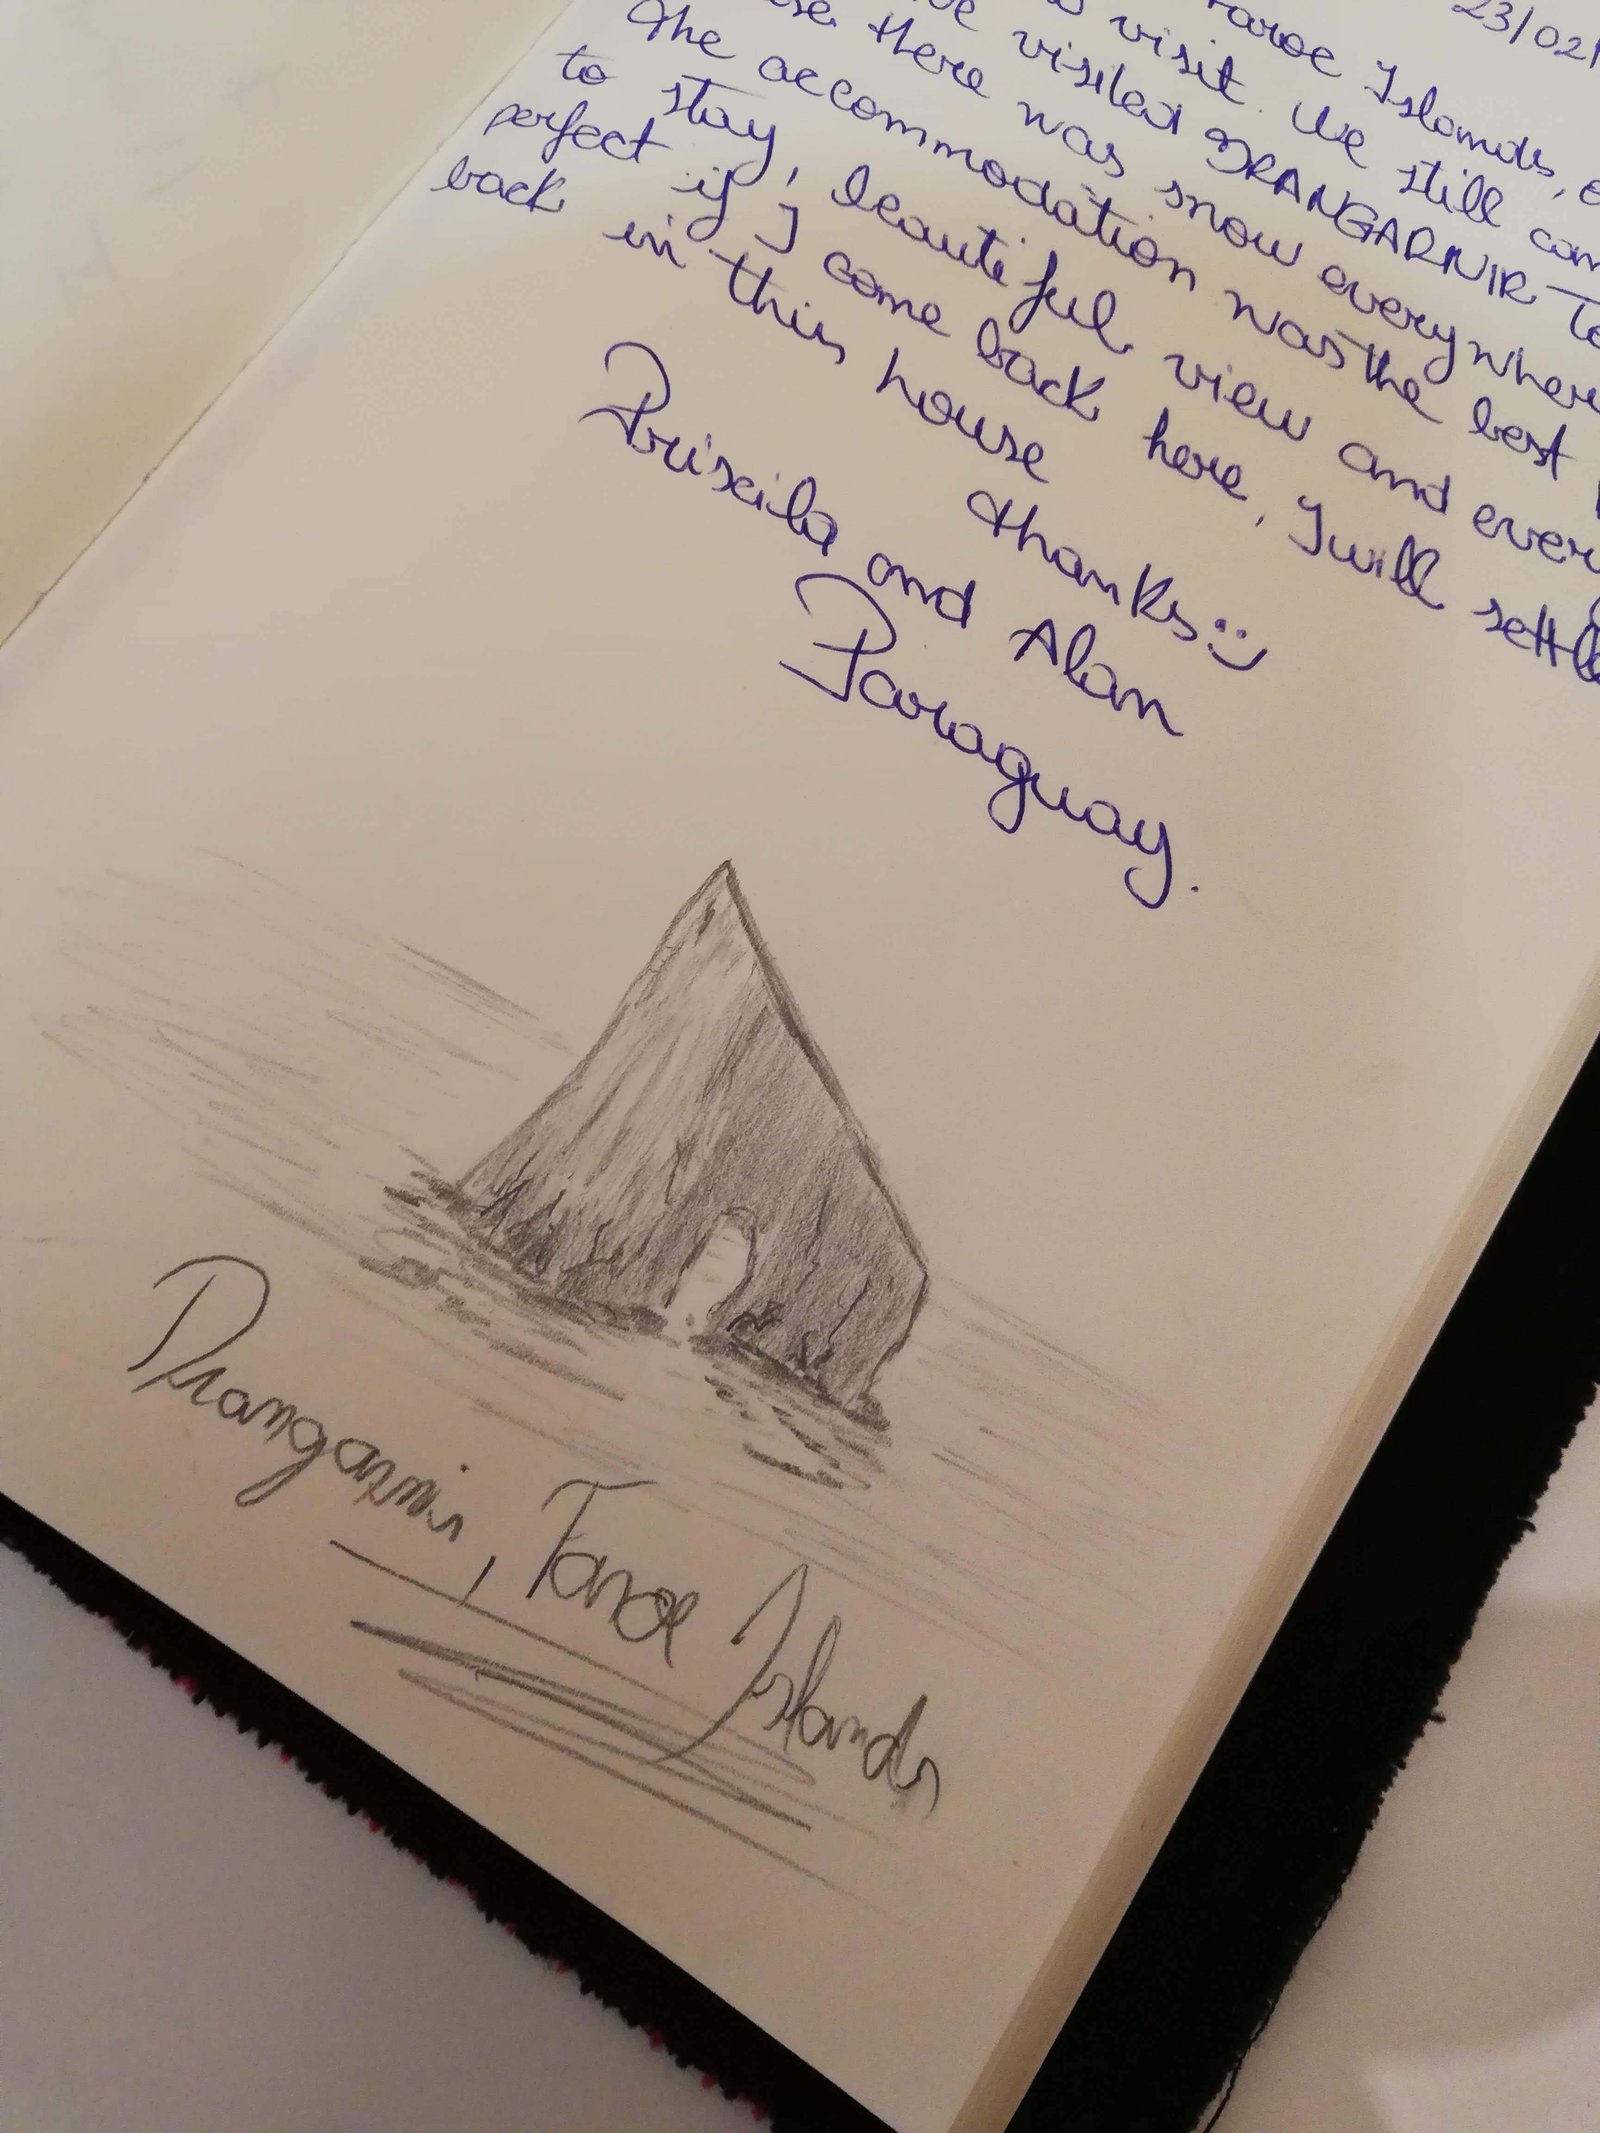 23/02/
Faroe Islands,
visit. We still can
we visited DRANGARNIR
there was snow everywhere
the accommodation was the best
to stay, beautiful view and every
perfect if I come back here, I will settle
back in this house
thanks :)
Priscila and Alan
Paraguay.
Drangarnir, Faroe Islands